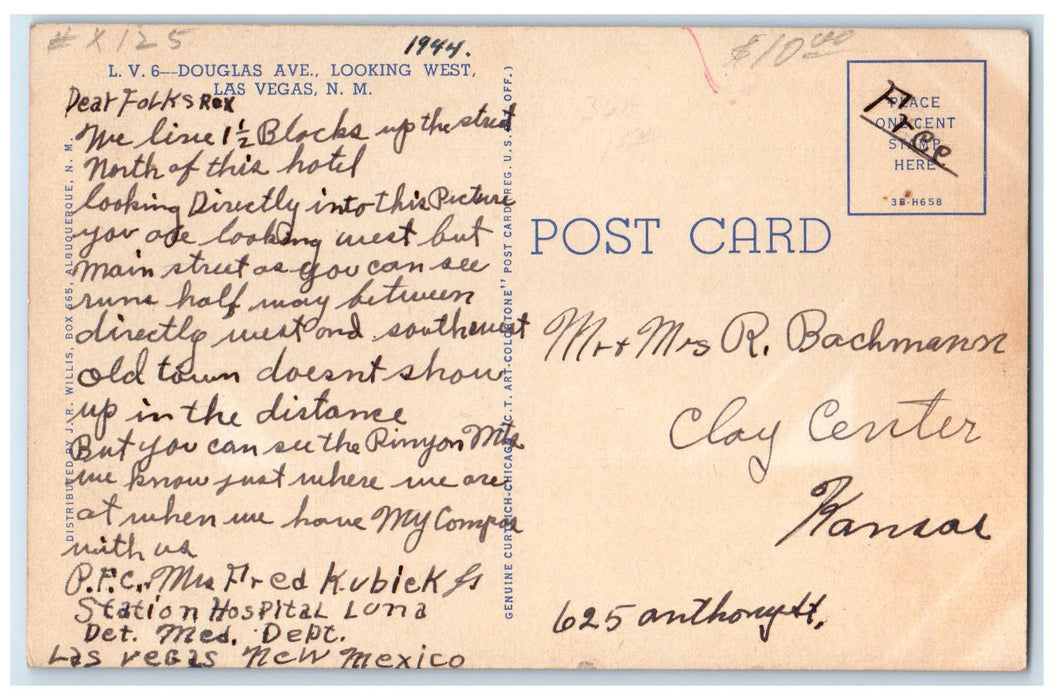 # X 125
1944.
$10.00
L. V. 6—DOUGLAS AVE., LOOKING WEST,
LAS VEGAS, N. M.
Dear Folks Rex
We live 1½ Blocks up the street
North of this hotel
looking Directly into this Picture
you are looking west but
Main street as you can see
runs half way between
directly west and southwest
old town doesnt show
up in the distance
But you can see the Pinyon Mts
we know just where we are
at when we have My Compas
with us
P.F.C. Mrs Fred Kubick Jr
Station Hospital Luna
Det. Med. Dept.
Las Vegas New Mexico
DISTRIBUTED BY J.R. WILLIS, BOX 665, ALBUQUERQUE, N. M.
GENUINE CURTEICH-CHICAGO "C.T. ART-COLORTONE" POST CARD (REG. U.S. PAT. OFF.)
POST CARD
PLACE
ONE CENT
STAMP
HERE
3B-H658
Free
Mr + Mrs R. Bachmann
Clay Center
Kansas
625 anthony st.